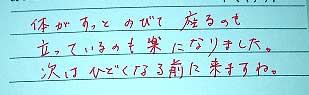 体がすっとのびて 座るのも
立っているのも楽になりました。
次はひどくなる前に来ますね。